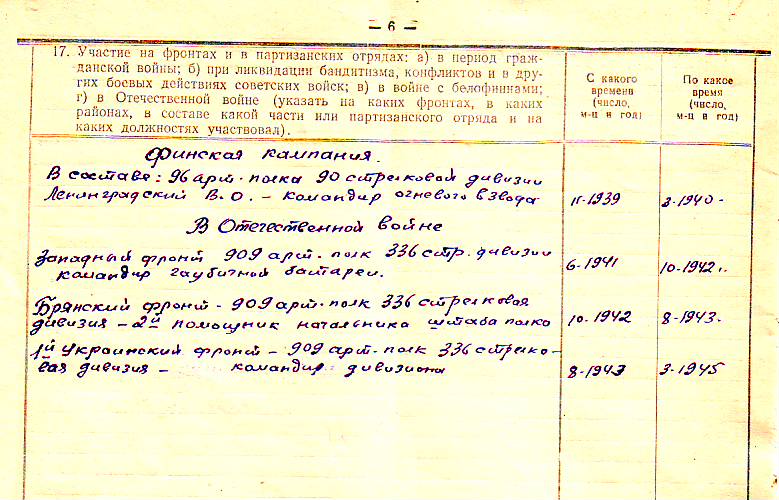 — 6 —
17. Участие на фронтах и в партизанских отрядах: а) в период граж-
данской войны; б) при ликвидации бандитизма, конфликтов и в дру-
гих боевых действиях советских войск; в) в войне с белофиннами;
г) в Отечественной войне (указать на каких фронтах, в каких
районах, в составе какой части или партизанского отряда и на
каких должностях участвовал).
С какого
времени
(число,
м-ц и год)
По какое
время
(число,
м-ц и год)
Финская кампания.
В составе: 96 арт. полка 90 стрелковой дивизии
Ленинградский В.О. – командир огневого взвода 11-1939 3-1940-
В Отечественной войне
Западный фронт 909 арт. полк 336 стр. дивизии
командир гаубичной батареи. 6-1941 10-1942г.
Брянский фронт - 909 арт. полк 336 стрелковая
дивизия – 2й помощник начальника штаба полка 10-1942 8-1943.
1й Украинский фронт – 909 арт. полк 336 стрелко-
вая дивизия – командир дивизиона 8-1943 3-1945